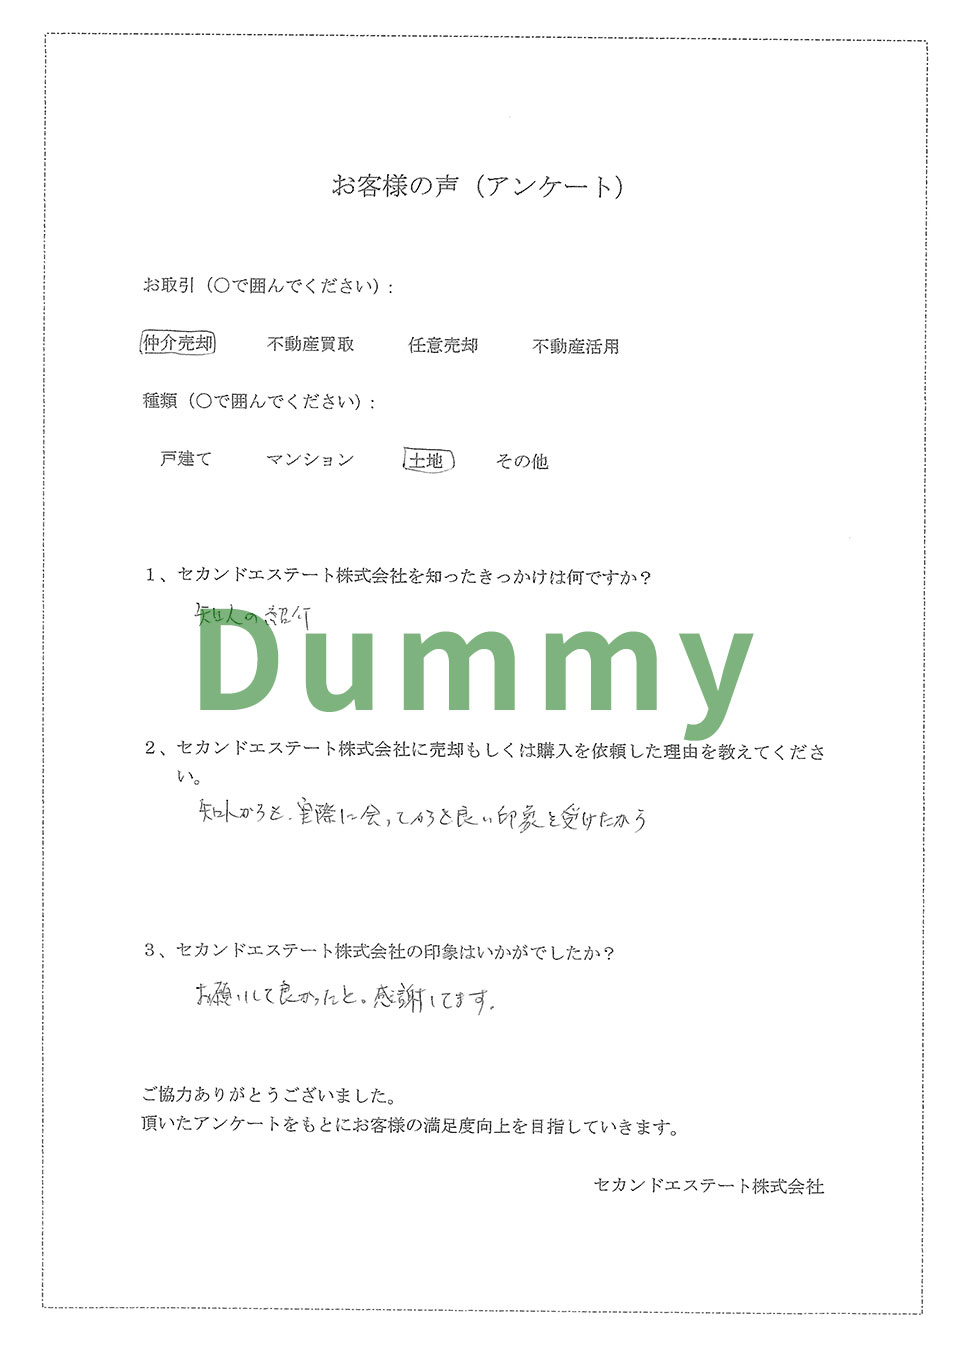 お客様の声（アンケート）
お取引（〇で囲んでください）：
仲介売却 不動産買取 任意売却 不動産活用
種類（〇で囲んでください）：
戸建て マンション 土地 その他
１、セカンドエステート株式会社を知ったきっかけは何ですか？
知人の紹介
Dummy
２、セカンドエステート株式会社に売却もしくは購入を依頼した理由を教えてくださ
い。
知人からも、実際に会ってからも良い印象を受けたから
３、セカンドエステート株式会社の印象はいかがでしたか？
お願いして良かったと。感謝してます。
ご協力ありがとうございました。
頂いたアンケートをもとにお客様の満足度向上を目指していきます。
セカンドエステート株式会社